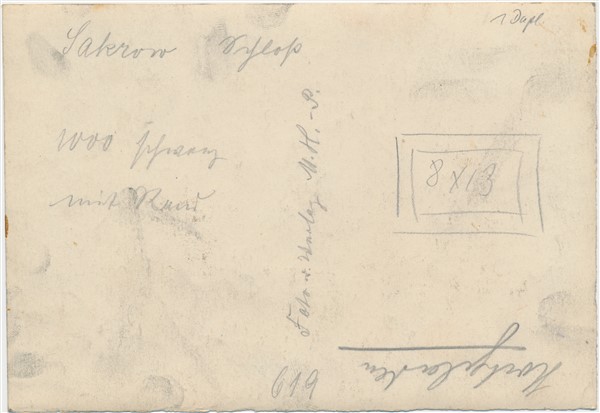 1 Dupl.
Sakrow Schloß
1000 schwarz
mit Rand
8 x 13
Foto u. Verlag M. K. - P.
619